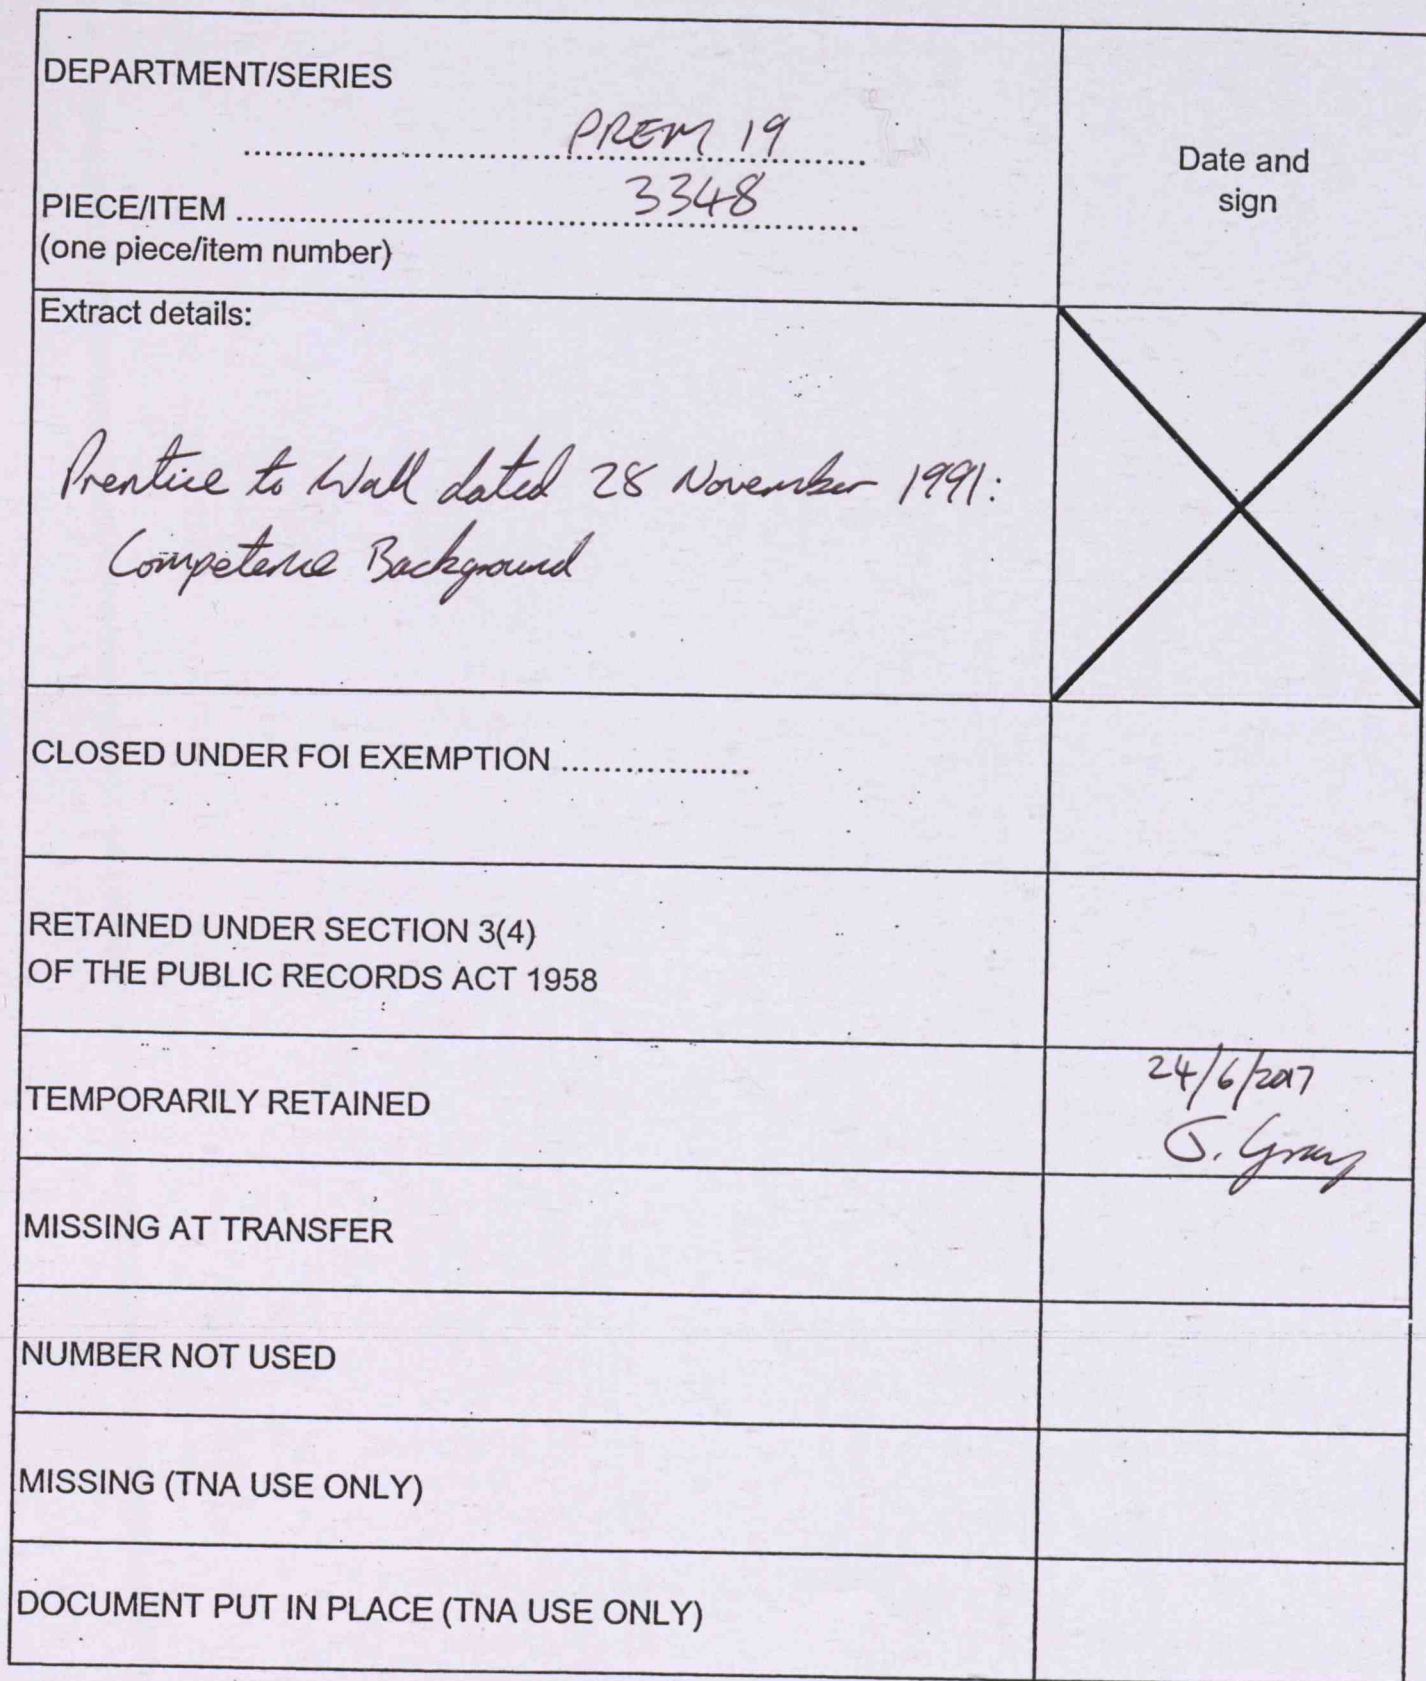 DEPARTMENT/SERIES
PREM 19
Date and
sign
PIECE/ITEM 3348
(one piece/item number)
Extract details:
Prentice to Wall dated 28 November 1991:
Competence Background
CLOSED UNDER FOI EXEMPTION
RETAINED UNDER SECTION 3(4)
OF THE PUBLIC RECORDS ACT 1958
TEMPORARILY RETAINED
24/6/2017
J. Gray
MISSING AT TRANSFER
NUMBER NOT USED
MISSING (TNA USE ONLY)
DOCUMENT PUT IN PLACE (TNA USE ONLY)